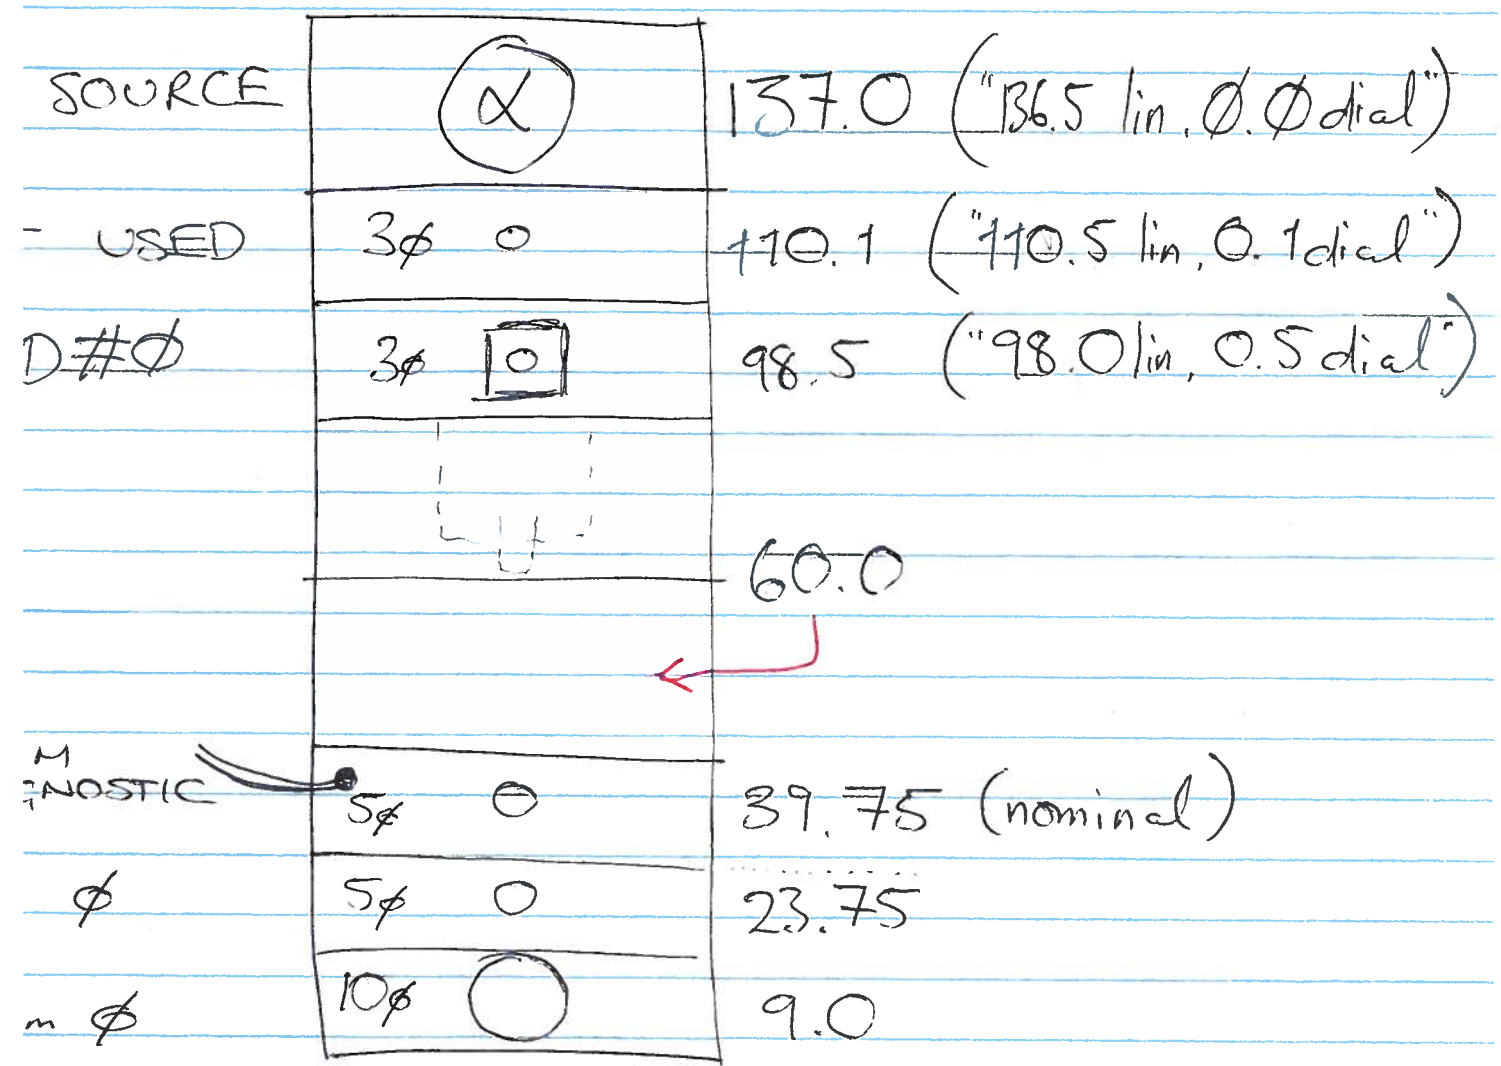 SOURCE α 137.0 ("136.5 lin, Ø.Ø dial")
- USED 3ø 110.1 ("110.5 lin, 0.1 dial")
D#Ø 3ø 98.5 ("98.0 lin, 0.5 dial")
60.0
M
NOSTIC 5ø 39.75 (nominal)
ø 5ø 23.75
m ø 10ø 9.0